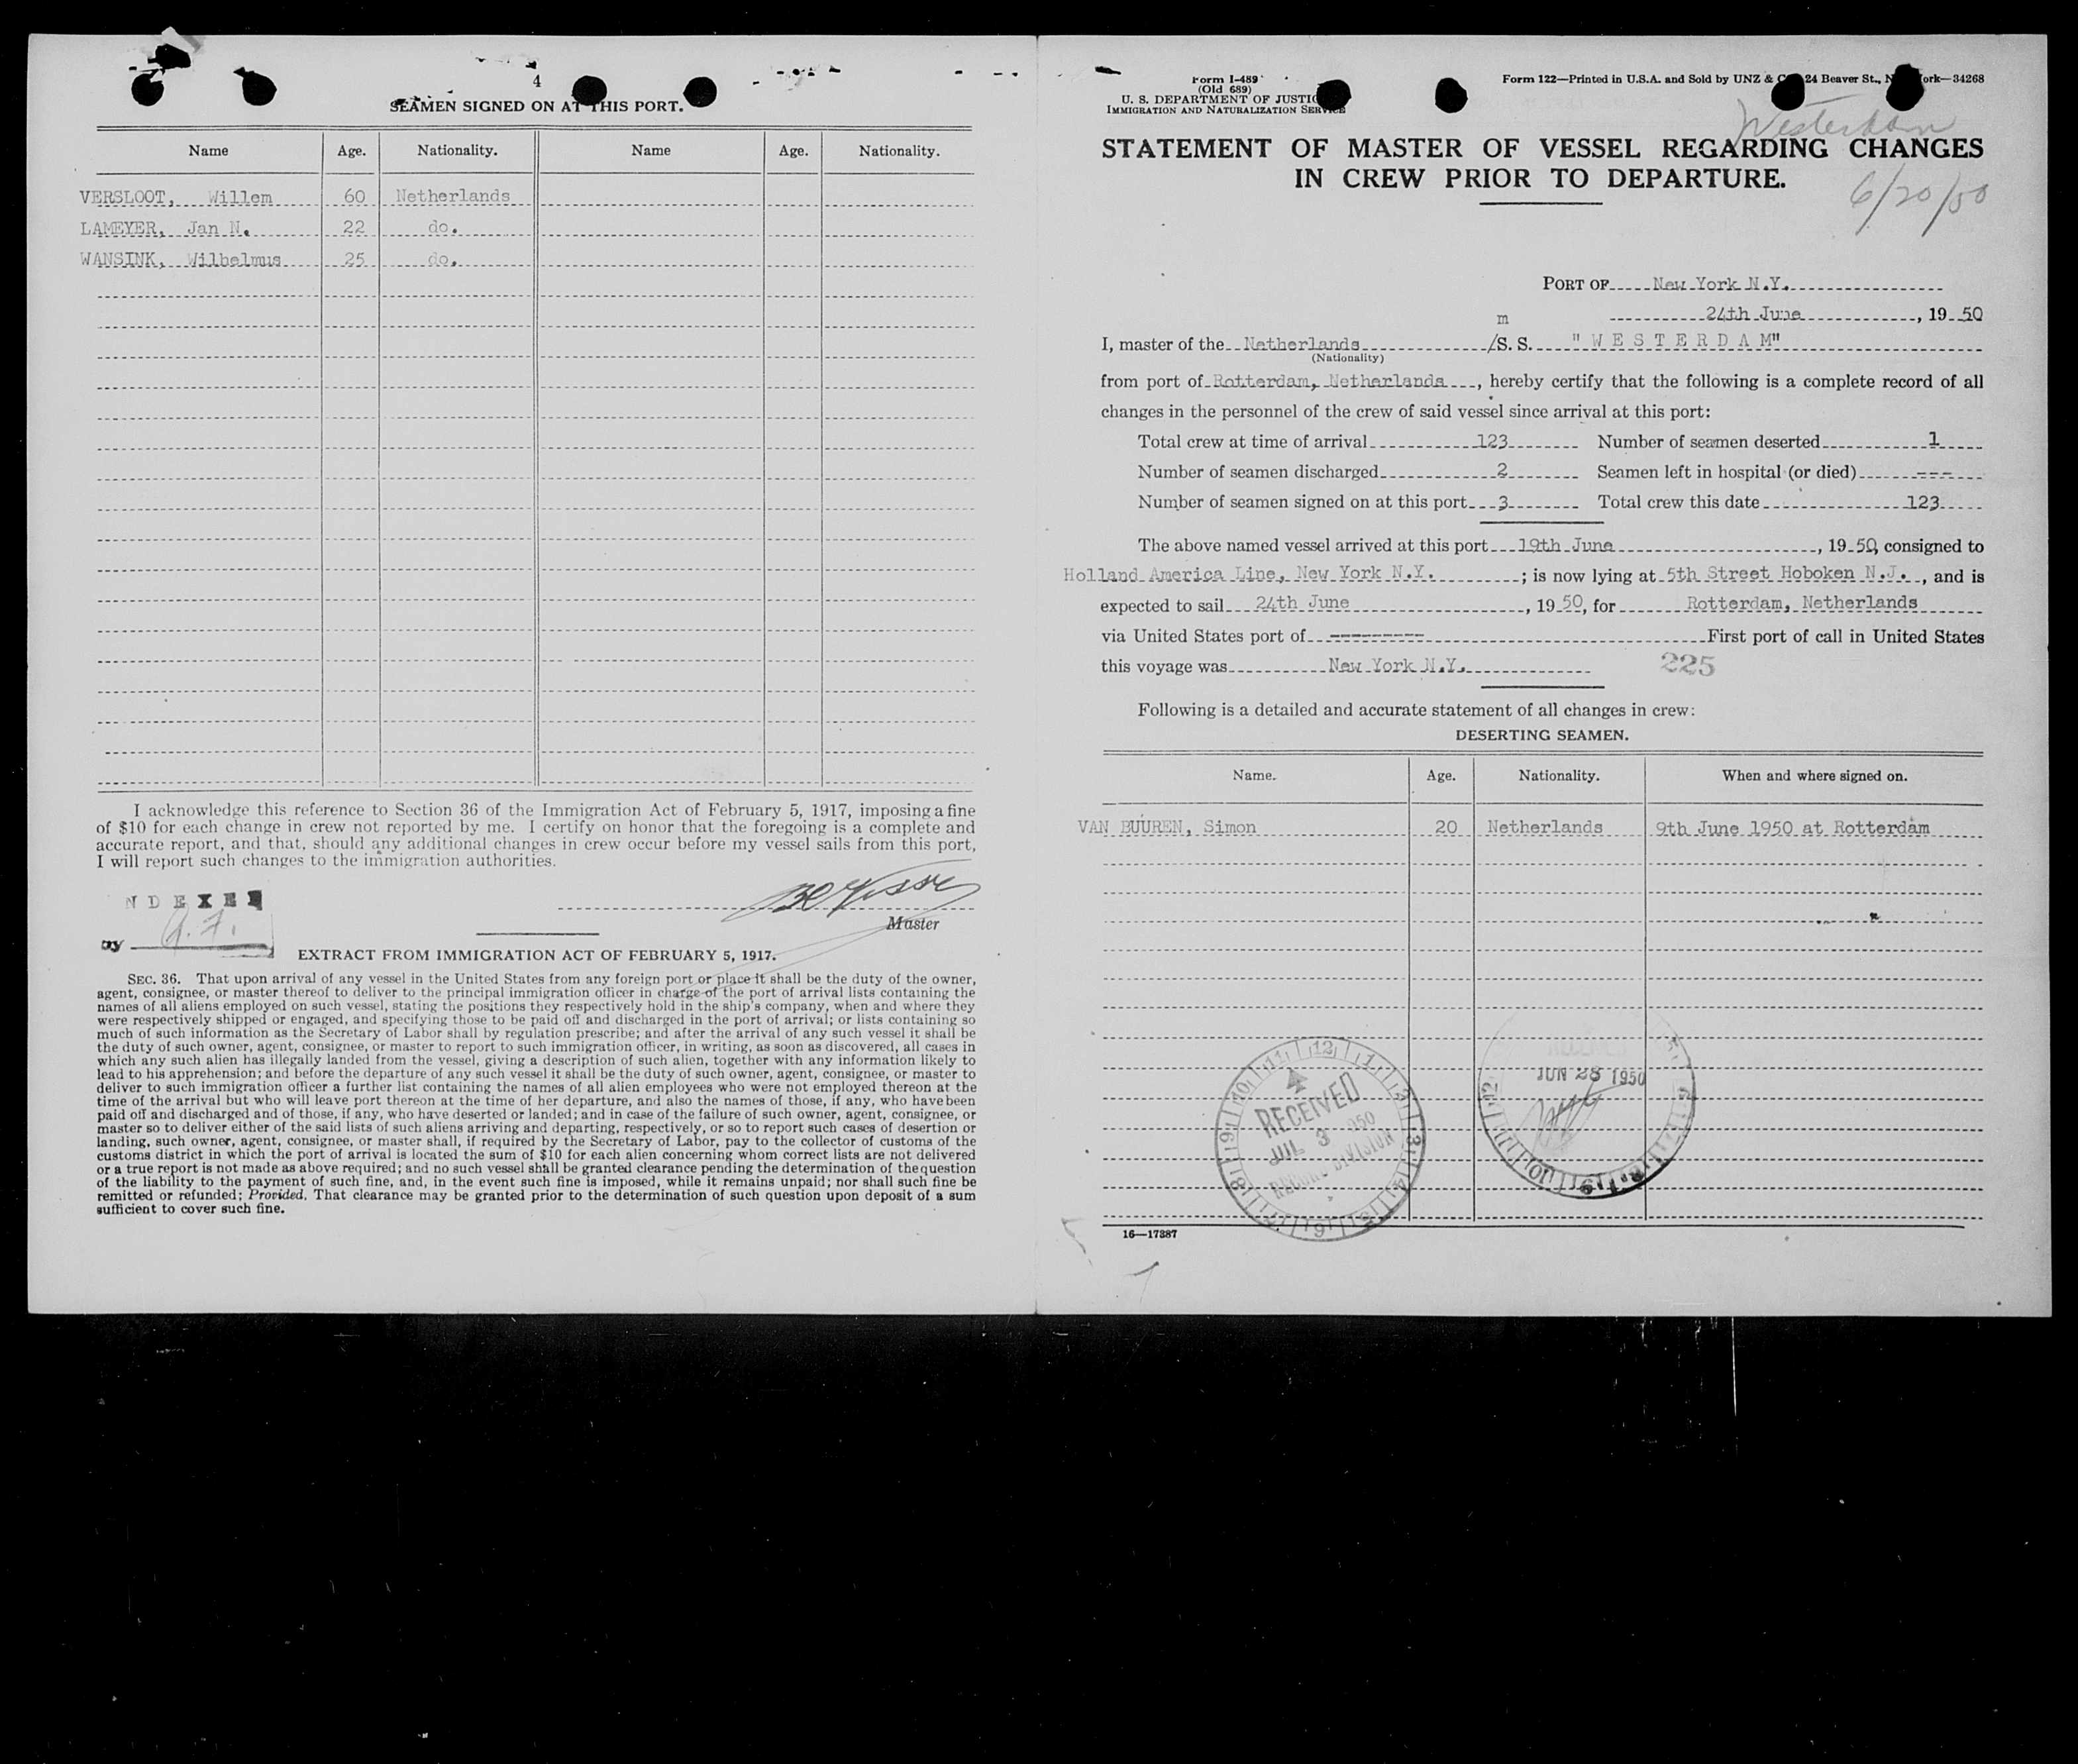 4
SEAMEN SIGNED ON AT THIS PORT.
Name Age. Nationality. Name Age. Nationality.
VERSLOOT, Willem 60 Netherlands
LAMEYER, Jan N. 22 do.
WANSINK, Wilhelmus 25 do.
I acknowledge this reference to Section 36 of the Immigration Act of February 5, 1917, imposing a fine
of $10 for each change in crew not reported by me. I certify on honor that the foregoing is a complete and
accurate report, and that, should any additional changes in crew occur before my vessel sails from this port,
I will report such changes to the immigration authorities.
NDEXED
by
Master
EXTRACT FROM IMMIGRATION ACT OF FEBRUARY 5, 1917.
SEC. 36. That upon arrival of any vessel in the United States from any foreign port or place it shall be the duty of the owner,
agent, consignee, or master thereof to deliver to the principal immigration officer in charge of the port of arrival lists containing the
names of all aliens employed on such vessel, stating the positions they respectively hold in the ship's company, when and where they
were respectively shipped or engaged, and specifying those to be paid off and discharged in the port of arrival; or lists containing so
much of such information as the Secretary of Labor shall by regulation prescribe; and after the arrival of any such vessel it shall be
the duty of such owner, agent, consignee, or master to report to such immigration officer, in writing, as soon as discovered, all cases in
which any such alien has illegally landed from the vessel, giving a description of such alien, together with any information likely to
lead to his apprehension; and before the departure of any such vessel it shall be the duty of such owner, agent, consignee, or master to
deliver to such immigration officer a further list containing the names of all alien employees who were not employed thereon at the
time of the arrival but who will leave port thereon at the time of her departure, and also the names of those, if any, who have been
paid off and discharged and of those, if any, who have deserted or landed; and in case of the failure of such owner, agent, consignee, or
master so to deliver either of the said lists of such aliens arriving and departing, respectively, or so to report such cases of desertion or
landing, such owner, agent, consignee, or master shall, if required by the Secretary of Labor, pay to the collector of customs of the
customs district in which the port of arrival is located the sum of $10 for each alien concerning whom correct lists are not delivered
or a true report is not made as above required; and no such vessel shall be granted clearance pending the determination of the question
of the liability to the payment of such fine, and, in the event such fine is imposed, while it remains unpaid; nor shall such fine be
remitted or refunded; Provided, That clearance may be granted prior to the determination of such question upon deposit of a sum
sufficient to cover such fine.
Form I-489
(Old 689)
U. S. DEPARTMENT OF JUSTIC
IMMIGRATION AND NATURALIZATION SERVICE
Form 122—Printed in U.S.A. and Sold by UNZ & C 24 Beaver St., N ork—34268
Westerdam
STATEMENT OF MASTER OF VESSEL REGARDING CHANGES
IN CREW PRIOR TO DEPARTURE.
6/20/50
PORT OF New York N.Y.
24th June, 19 50
m
I, master of the Netherlands /S. S. "W E S T E R D A M"
(Nationality)
from port of Rotterdam, Netherlands, hereby certify that the following is a complete record of all
changes in the personnel of the crew of said vessel since arrival at this port:
Total crew at time of arrival 123 Number of seamen deserted 1
Number of seamen discharged 2 Seamen left in hospital (or died) ---
Number of seamen signed on at this port 3 Total crew this date 123
The above named vessel arrived at this port 19th June, 19 50, consigned to
Holland America Line, New York N.Y.; is now lying at 5th Street Hoboken N.J., and is
expected to sail 24th June, 19 50, for Rotterdam, Netherlands
via United States port of --------- First port of call in United States
this voyage was New York N.Y. 225
Following is a detailed and accurate statement of all changes in crew:
DESERTING SEAMEN.
Name. Age. Nationality. When and where signed on.
VAN BUUREN, Simon 20 Netherlands 9th June 1950 at Rotterdam
RECEIVED
JUL 3 950
RECORD DIVISION
RECEIVED
JUN 28 1950
16—17387